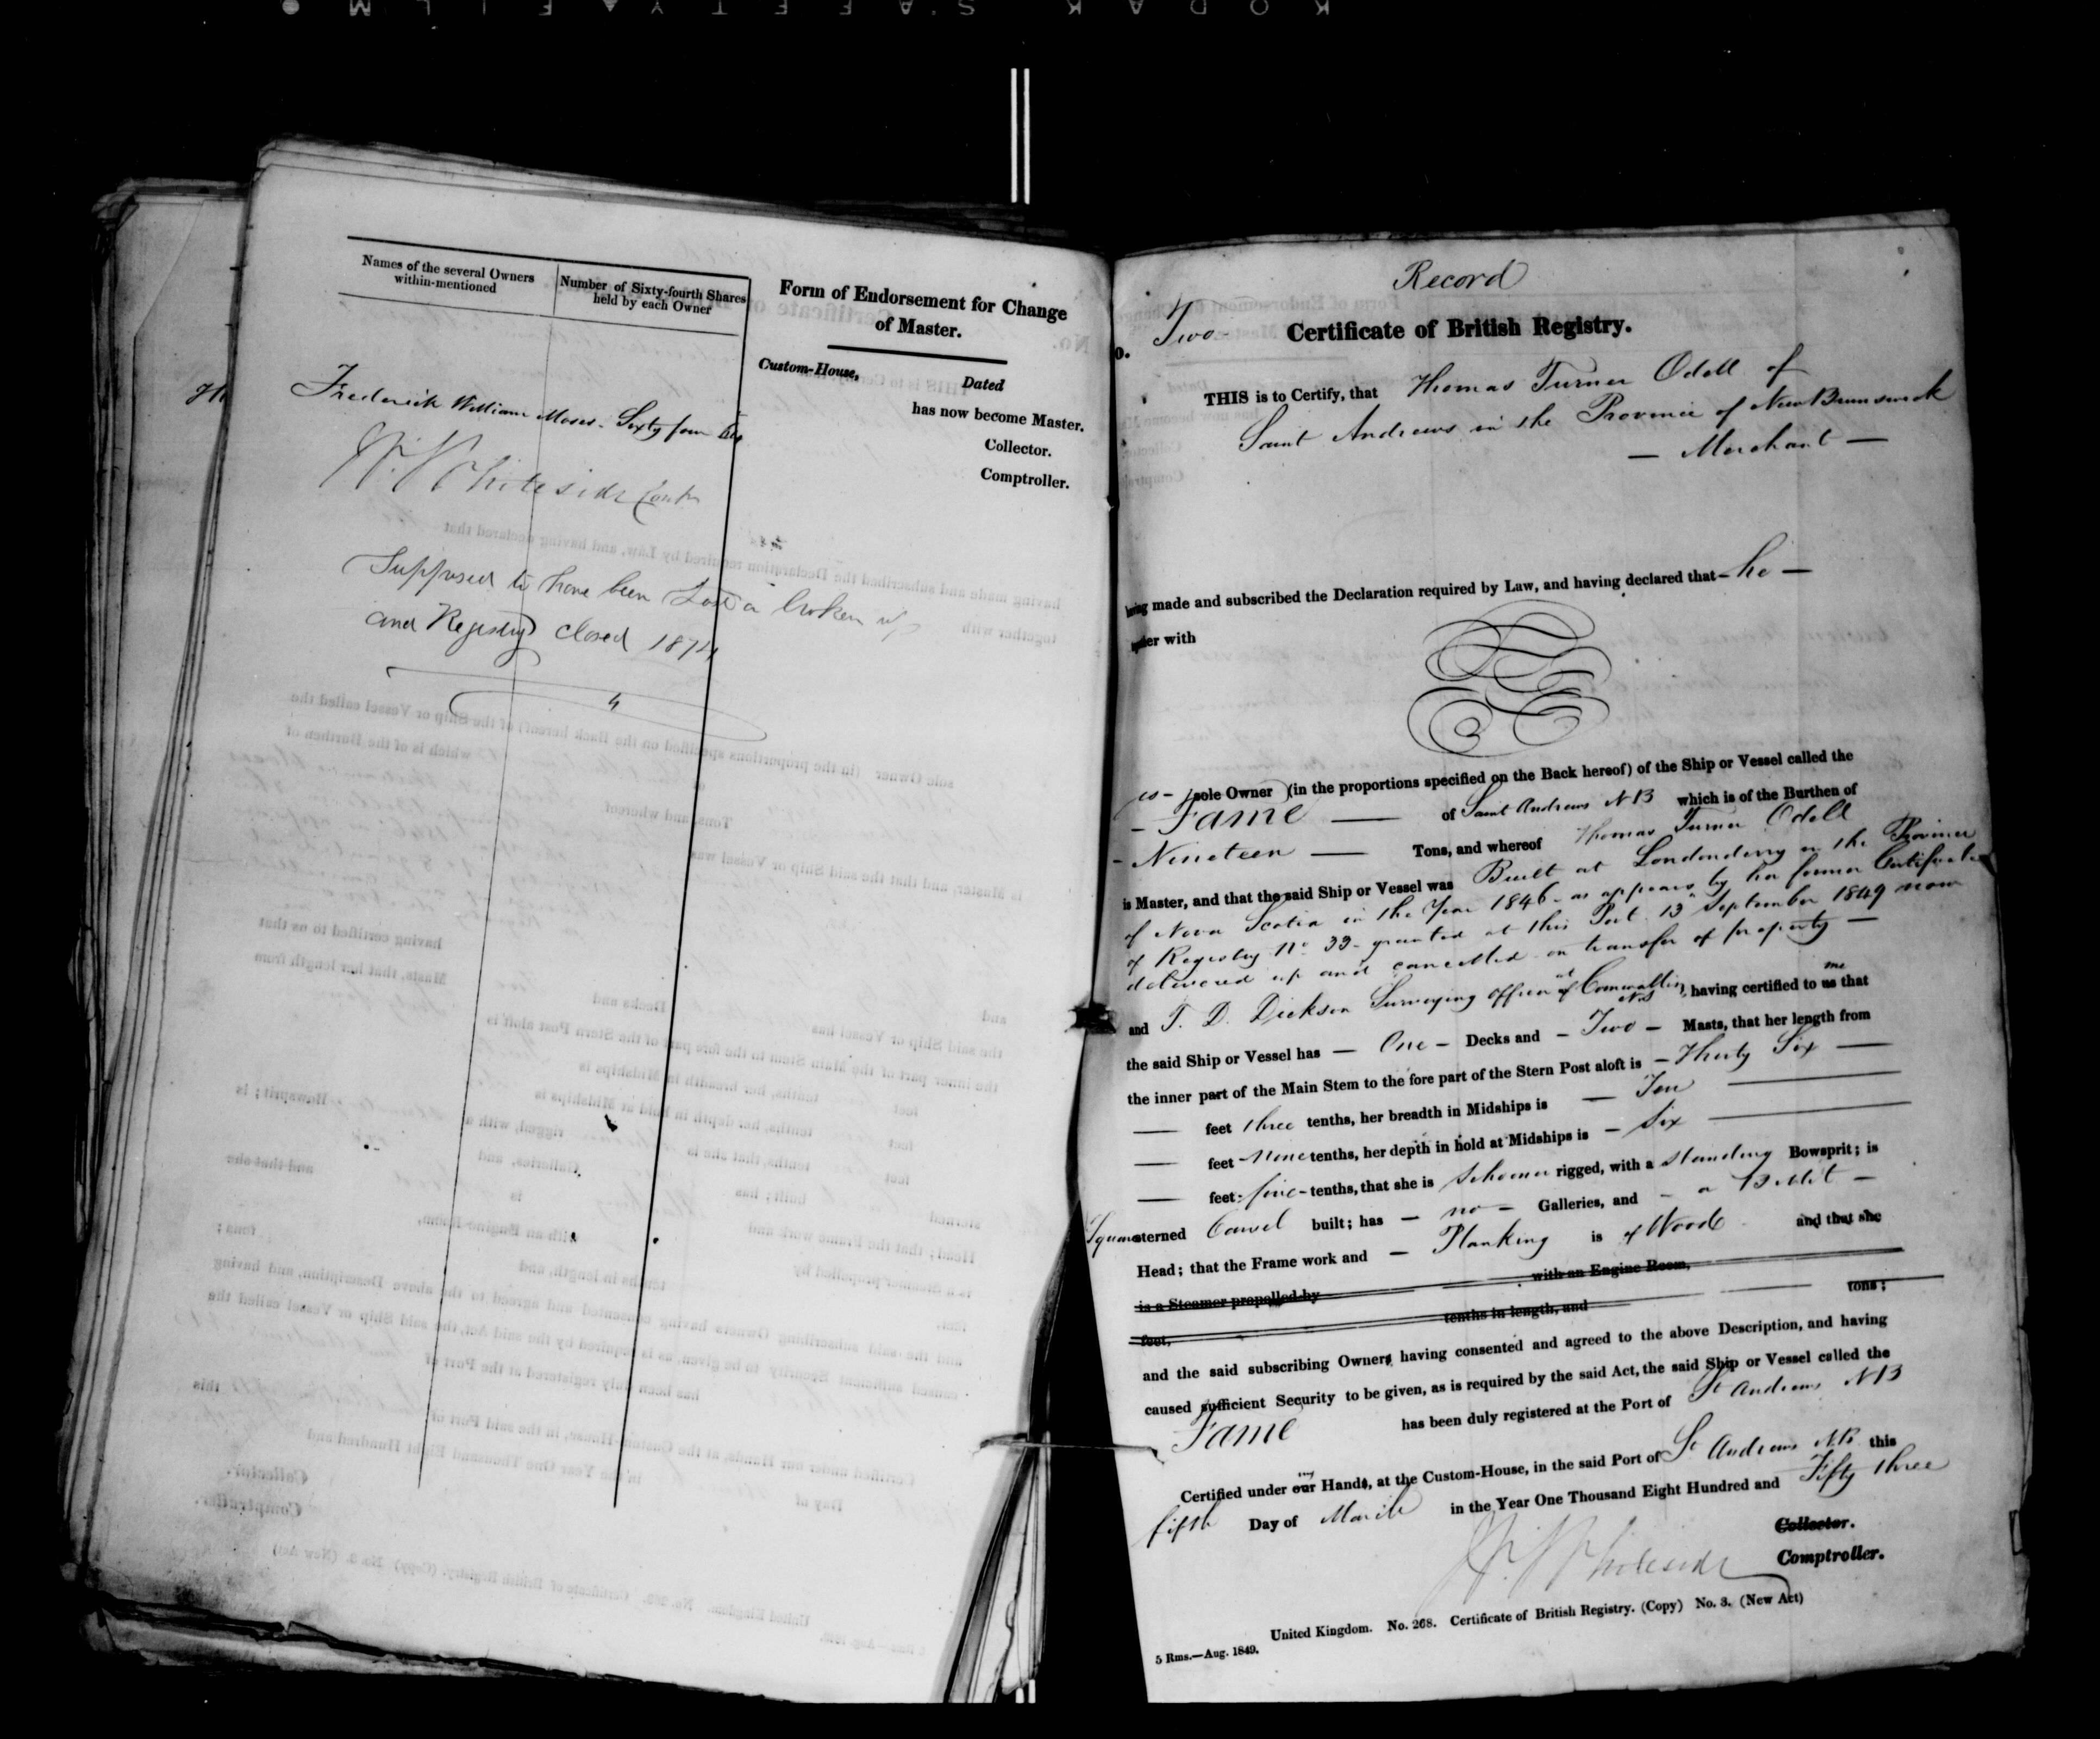 KODAK SAFETY FILM
Names of the several Owners within-mentioned
Number of Sixty-fourth Shares held by each Owner
Frederick William Moses - Sixty four
W. Whiteside Contr
Supposed to have been Lost or broken up
and Registry closed 1874
Form of Endorsement for Change
of Master.
Custom-House,
Dated
has now become Master.
Collector.
Comptroller.
Record
o. Two -
Certificate of British Registry.
THIS is to Certify, that Thomas Turner Odell of
Saint Andrews in the Province of New Brunswick
— Merchant —
having made and subscribed the Declaration required by Law, and having declared that - he —
together with
is - sole Owner (in the proportions specified on the Back hereof) of the Ship or Vessel called the
- Fame — of Saint Andrews NB which is of the Burthen of
- Nineteen — Tons, and whereof Thomas Turner Odell
is Master, and that the said Ship or Vessel was Built at Londonderry in the Province
of Nova Scotia in the Year 1846 - as appears by her former Certificate
of Registry No 33 - granted at this Port 13 September 1849 now
delivered up and cancelled on transfer of property —
and T. D. Dickson Surveying Officer at Cornwallis NS having certified to us me that
the said Ship or Vessel has — One - Decks and - Two - Masts, that her length from
the inner part of the Main Stem to the fore part of the Stern Post aloft is - Thirty Six —
— feet three tenths, her breadth in Midships is — Ten —
— feet nine tenths, her depth in hold at Midships is - Six —
— feet - five - tenths, that she is Schooner rigged, with a standing Bowsprit; is
Square sterned Carvel built; has — no - Galleries, and - a Billet —
Head; that the Frame work and — Planking is of Wood and that she
is a Steamer propelled by with an Engine Room,
feet, tenths in length, and tons;
and the said subscribing Owners having consented and agreed to the above Description, and having
caused sufficient Security to be given, as is required by the said Act, the said Ship or Vessel called the
Fame has been duly registered at the Port of St Andrews NB
Certified under our my Hands, at the Custom-House, in the said Port of St Andrews NB this
fifth Day of March in the Year One Thousand Eight Hundred and Fifty three
W. Whiteside
Collector.
Comptroller.
United Kingdom. No. 268. Certificate of British Registry. (Copy) No. 3. (New Act)
5 Rms.—Aug. 1849.